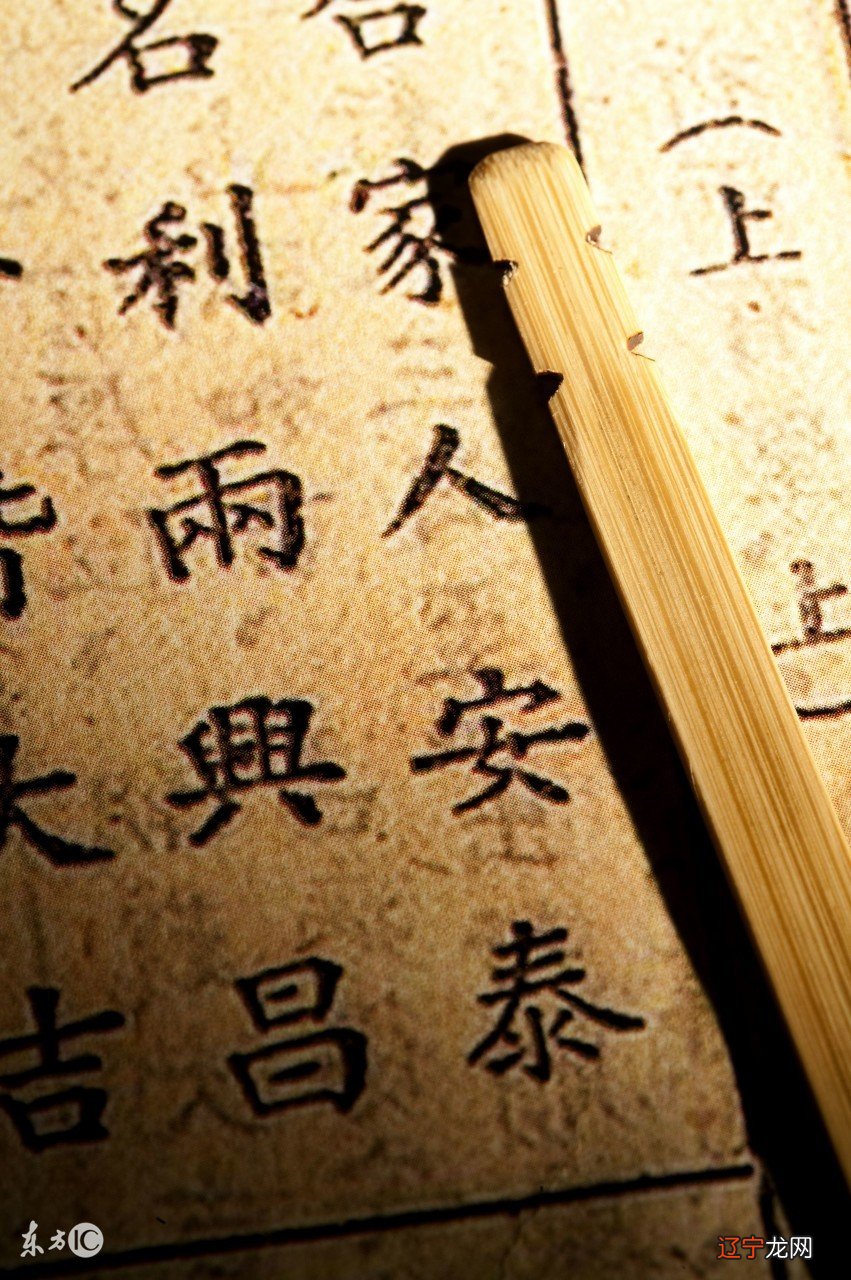 （上上）
家人安泰
名利兩興昌
大吉
东方IC
辽宁龙网